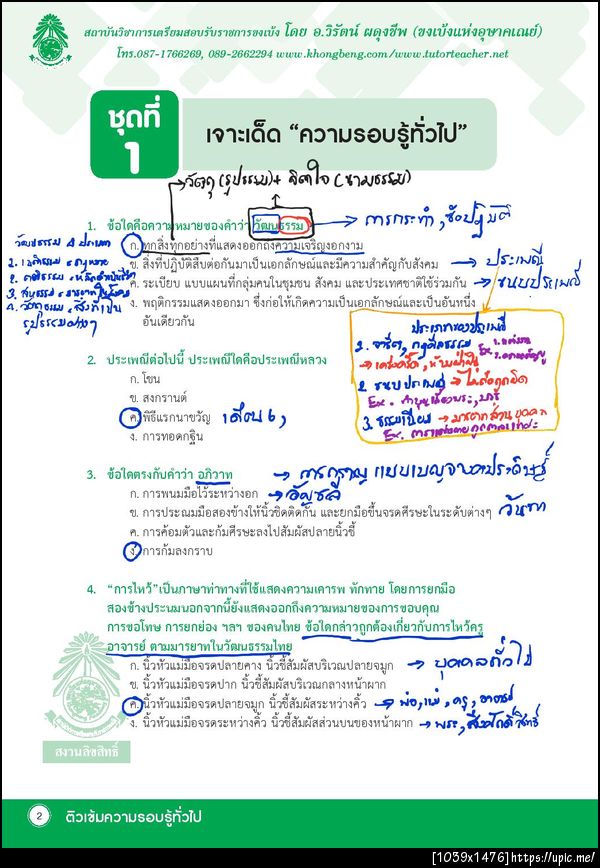 สถาบันวิชาการเตรียมสอบรับราชการขงเบ้ง โดย อ.วิรัตน์ ผดุงชีพ (ขงเบ้งแห่งอุษาคเณย์)
โทร.087-1766269, 089-2662294 www.khongbeng.com/www.tutorteacher.net
ชุดที่
1
เจาะเด็ด “ความรอบรู้ทั่วไป”
วัตถุ (รูปธรรม) + จิตใจ (นามธรรม)
1. ข้อใดคือความหมายของคำว่า วัฒนธรรม
การกระทำ, ข้อปฏิบัติ
ก. ทุกสิ่งทุกอย่างที่แสดงออกถึงความเจริญงอกงาม
ข. สิ่งที่ปฏิบัติสืบต่อกันมาเป็นเอกลักษณ์และมีความสำคัญกับสังคม
ประเพณี
ค. ระเบียบ แบบแผนที่กลุ่มคนในชุมชน สังคม และประเทศชาติใช้ร่วมกัน
ขนบประเพณี
ง. พฤติกรรมแสดงออกมา ซึ่งก่อให้เกิดความเป็นเอกลักษณ์และเป็นอันหนึ่ง
อันเดียวกัน
วัฒนธรรม 4 ประเภท
1. เนติธรรม
2. คติธรรม
3. สหธรรม
4. วัตถุธรรม
รูปธรรมต่างๆ
ประเภทของประเพณี
1. จารีต, กฎศีลธรรม
2. ขนบประเพณี
3. ธรรมเนียม
2. ประเพณีต่อไปนี้ ประเพณีใดคือประเพณีหลวง
ก. โขน
ข. สงกรานต์
ค. พิธีแรกนาขวัญ เดือน 6,
ง. การทอดกฐิน
3. ข้อใดตรงกับคำว่า อภิวาท
การกราบแบบเบญจางคประดิษฐ์
ก. การพนมมือไว้ระหว่างอก
อัญชลี
ข. การประณมมือสองข้างให้นิ้วชิดติดกัน และยกมือขึ้นจรดศีรษะในระดับต่างๆ
วันทา
ค. การค้อมตัวและก้มศีรษะลงไปสัมผัสปลายนิ้วชี้
ง. การก้มลงกราบ
4. “การไหว้”เป็นภาษาท่าทางที่ใช้แสดงความเคารพ ทักทาย โดยการยกมือ
สองข้างประนมนอกจากนี้ยังแสดงออกถึงความหมายของการขอบคุณ
การขอโทษ การยกย่อง ฯลฯ ของคนไทย ข้อใดกล่าวถูกต้องเกี่ยวกับการไหว้ครู
อาจารย์ ตามมารยาทในวัฒนธรรมไทย
ก. นิ้วหัวแม่มือจรดปลายคาง นิ้วชี้สัมผัสบริเวณปลายจมูก
บุคคลทั่วไป
ข. นิ้วหัวแม่มือจรดปาก นิ้วชี้สัมผัสบริเวณกลางหน้าผาก
ค. นิ้วหัวแม่มือจรดปลายจมูก นิ้วชี้สัมผัสระหว่างคิ้ว
พ่อ, แม่, ครู, อาจารย์
ง. นิ้วหัวแม่มือจรดระหว่างคิ้ว นิ้วชี้สัมผัสส่วนบนของหน้าผาก
พระ, สิ่งศักดิ์สิทธิ์
สงวนลิขสิทธิ์
2 ติวเข้มความรอบรู้ทั่วไป
[1039x1476]https://upic.me/